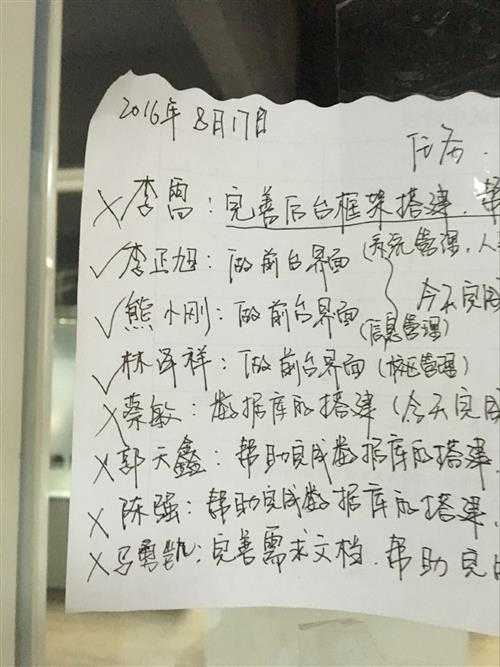 2016年8月17日
任务
×李雷：完善后台框架搭建，帮
✓李正旭：做前台界面（系统管理，人
今天完成
✓熊小刚：做前台界面（信息管理）
✓林泽祥：做前台界面（校区管理）
×蔡敏：数据库的搭建（今天完成
×郭天鑫：帮助完成数据库的搭建
×陈强：帮助完成数据库的搭建
×马勇凯：完善需求文档，帮助完